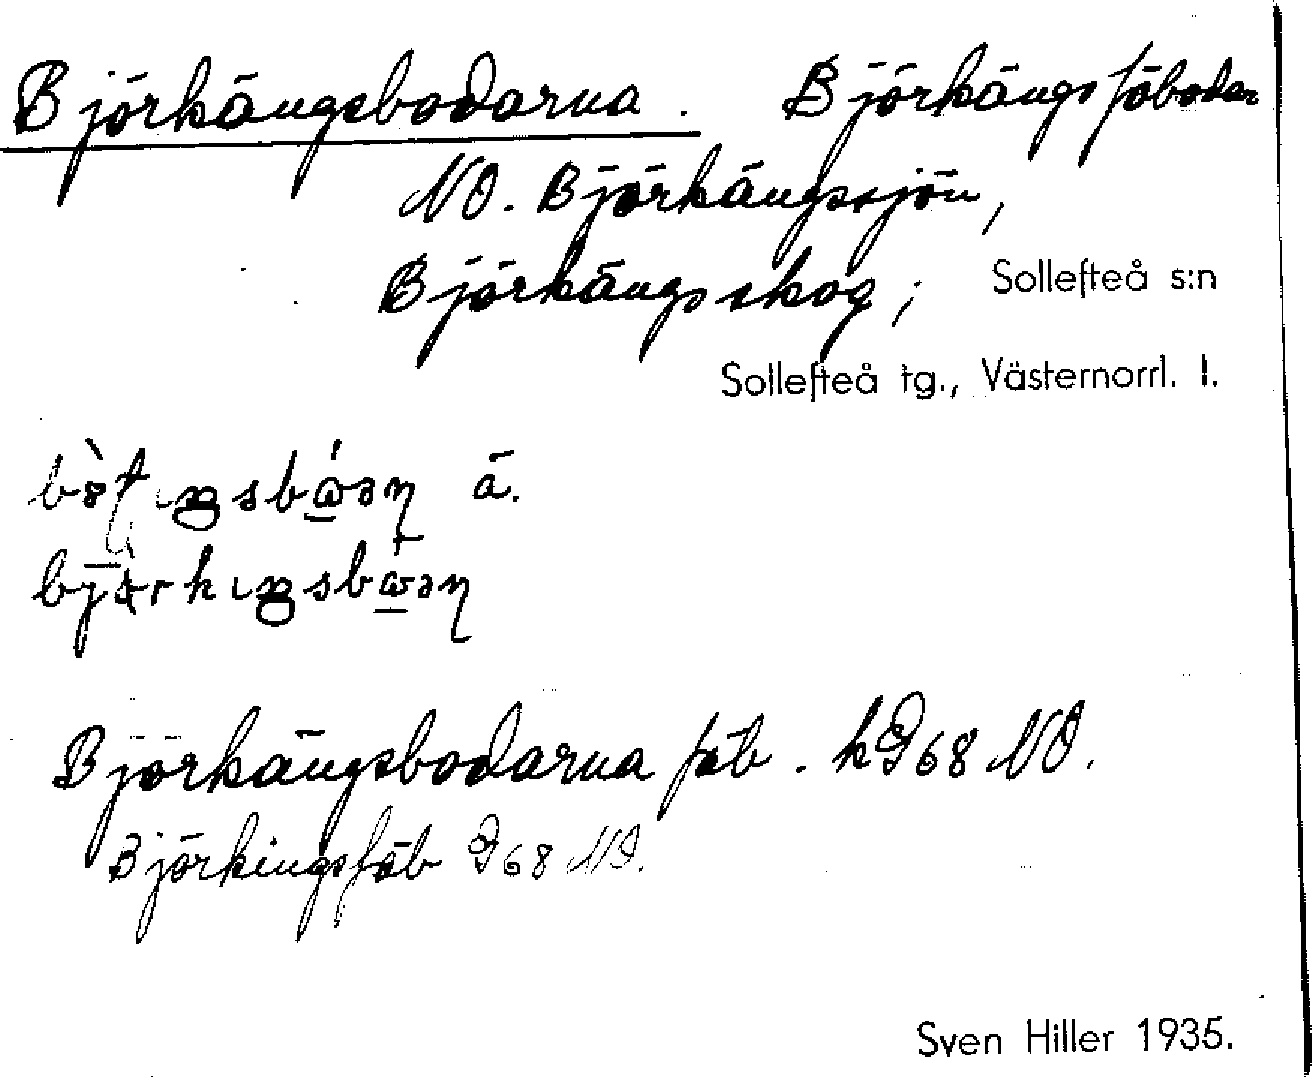 Björkängsbodarna. Björkängs fäbodar
NO. Björkängssjön,
Björkängsskog; Sollefteå s:n
Sollefteå tg., Västernorrl. l.
ä.
Björkängsbodarna fäb. kG68 NO.
Björkingsfäb G68 NO.
Sven Hiller 1935.